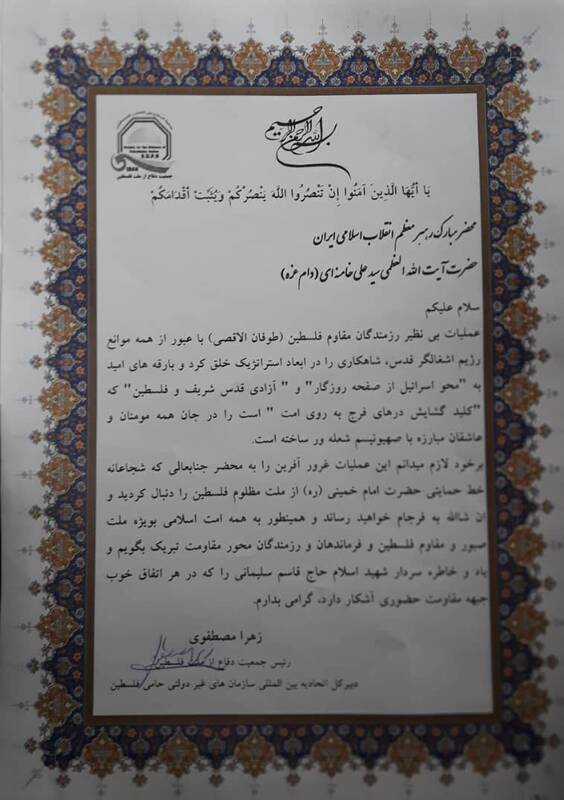 Society for the Defense of
Palestinian Nation
S.D.P.N
IRAN
جمعیت دفاع از ملت فلسطین
بسم الله الرحمن الرحیم
یَا أَیُّهَا الَّذِینَ آمَنُوا إِنْ تَنْصُرُوا اللَّهَ یَنْصُرْکُمْ وَیُثَبِّتْ أَقْدَامَکُمْ
محضر مبارک رهبر معظم انقلاب اسلامی ایران
حضرت آیت الله العظمی سید علی خامنه ای (دام عزه)
سلام علیکم
عملیات بی نظیر رزمندگان مقاوم فلسطین (طوفان الاقصی) با عبور از همه موانع
رژیم اشغالگر قدس، شاهکاری را در ابعاد استراتژیک خلق کرد و بارقه های امید
به "محو اسرائیل از صفحه روزگار" و " آزادی قدس شریف و فلسطین" که
"کلید گشایش درهای فرج به روی امت " است را در جان همه مومنان و
عاشقان مبارزه با صهیونیسم شعله ور ساخته است.
برخود لازم میدانم این عملیات غرور آفرین را به محضر جنابعالی که شجاعانه
خط حمایتی حضرت امام خمینی (ره) از ملت مظلوم فلسطین را دنبال کردید و
ان شاالله به فرجام خواهید رساند و همینطور به همه امت اسلامی بویژه ملت
صبور و مقاوم فلسطین و فرماندهان و رزمندگان محور مقاومت تبریک بگویم و
یاد و خاطره سردار شهید اسلام حاج قاسم سلیمانی را که در هر اتفاق خوب
جبهه مقاومت حضوری آشکار دارد، گرامی بدارم.
زهرا مصطفوی
رئیس جمعیت دفاع از ملت فلسطین
دبیرکل اتحادیه بین المللی سازمان های غیر دولتی حامی فلسطین